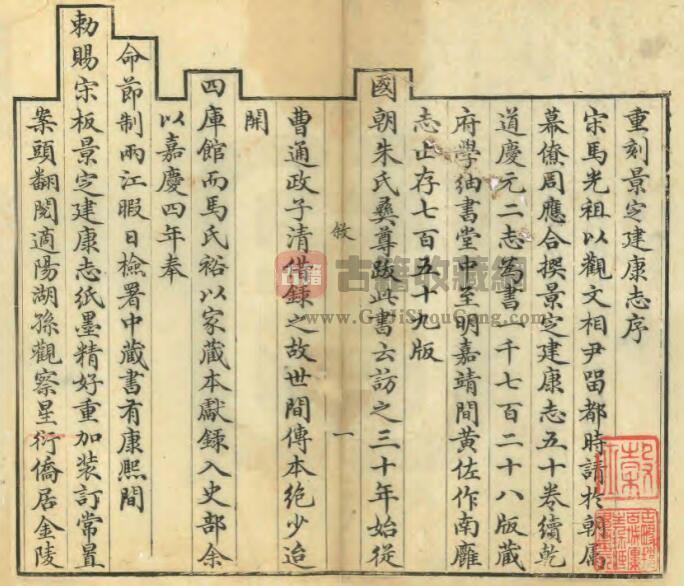 重刻景定建康志序
宋馬光祖以觀文相尹畱都時請於朝屬
幕僚周應合撰景定建康志五十卷續乾
道慶元二志為書一千七百二十八版藏
府學紬書堂中至明嘉靖間黃佐作南廱
志止存七百五十九版
國朝朱氏彞尊跋此書云訪之三十年始從
敘
一
曹通政子清借錄之故世間傳本絕少迨
開
四庫館而馬氏裕以家藏本獻錄入史部余
以嘉慶四年奉
命節制兩江暇日檢署中藏書有康熙間
勅賜宋板景定建康志紙墨精好重加裝訂常置
案頭翻閱適陽湖孫觀察星衍僑居金陵
古籍收藏網
www.GuJiShouCang.com